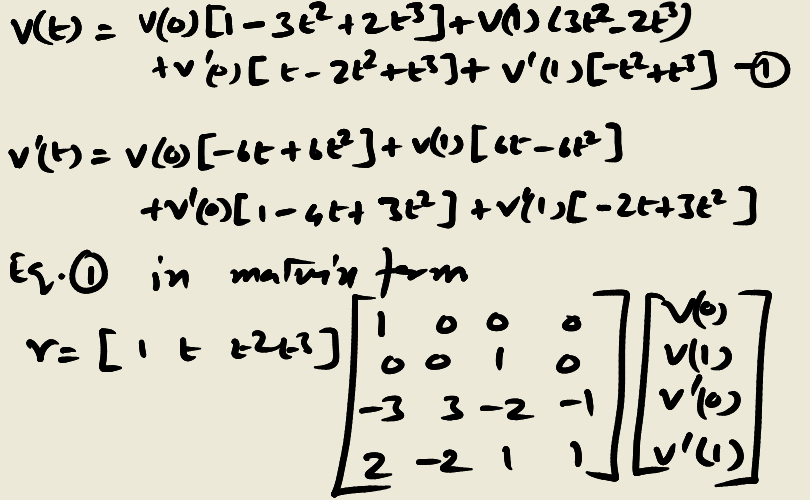 v(t) = v(0)[1 - 3t² + 2t³] + v(1) (3t² - 2t³)
+ v'(0) [t - 2t² + t³] + v'(1) [-t² + t³] - ①
v'(t) = v(0) [-6t + 6t²] + v(1) [6t - 6t²]
+ v'(0) [1 - 4t + 3t²] + v'(1) [-2t + 3t²]
Eq. ① in matrix form
v = [1 t t² t³] [1 0 0 0 [v(0)
0 0 1 0 v(1)
-3 3 -2 -1 v'(0)
2 -2 1 1] v'(1)]